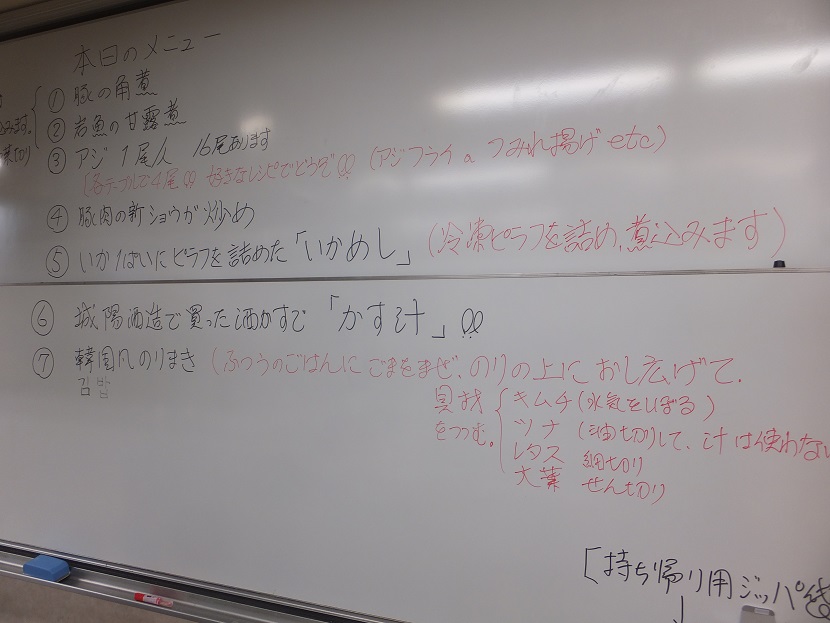 本日のメニュー
① 豚の角煮
② 岩魚の甘露煮
③ アジ 1尾/人 16尾あります
(各テーブルで4尾!! 好きなレシピでどうぞ!! (アジフライ a つみれ揚げ etc)
④ 豚肉の新ショウガ炒め
⑤ いかげぱいにピラフを詰めた「いかめし」(冷凍ピラフを詰め、煮込みます)
⑥ 城陽酒造で買った酒かすで「かす汁」!!
⑦ 韓国風のりまき (ふつうのごはんに ごまをまぜ、のりの上に おし広げて、
김밥
具材をつつむ。
キムチ (水気をしぼる)
ツナ (油切りして、汁は使わない
レタス 細切り
大葉 せん切り
持ち帰り用ジッパ